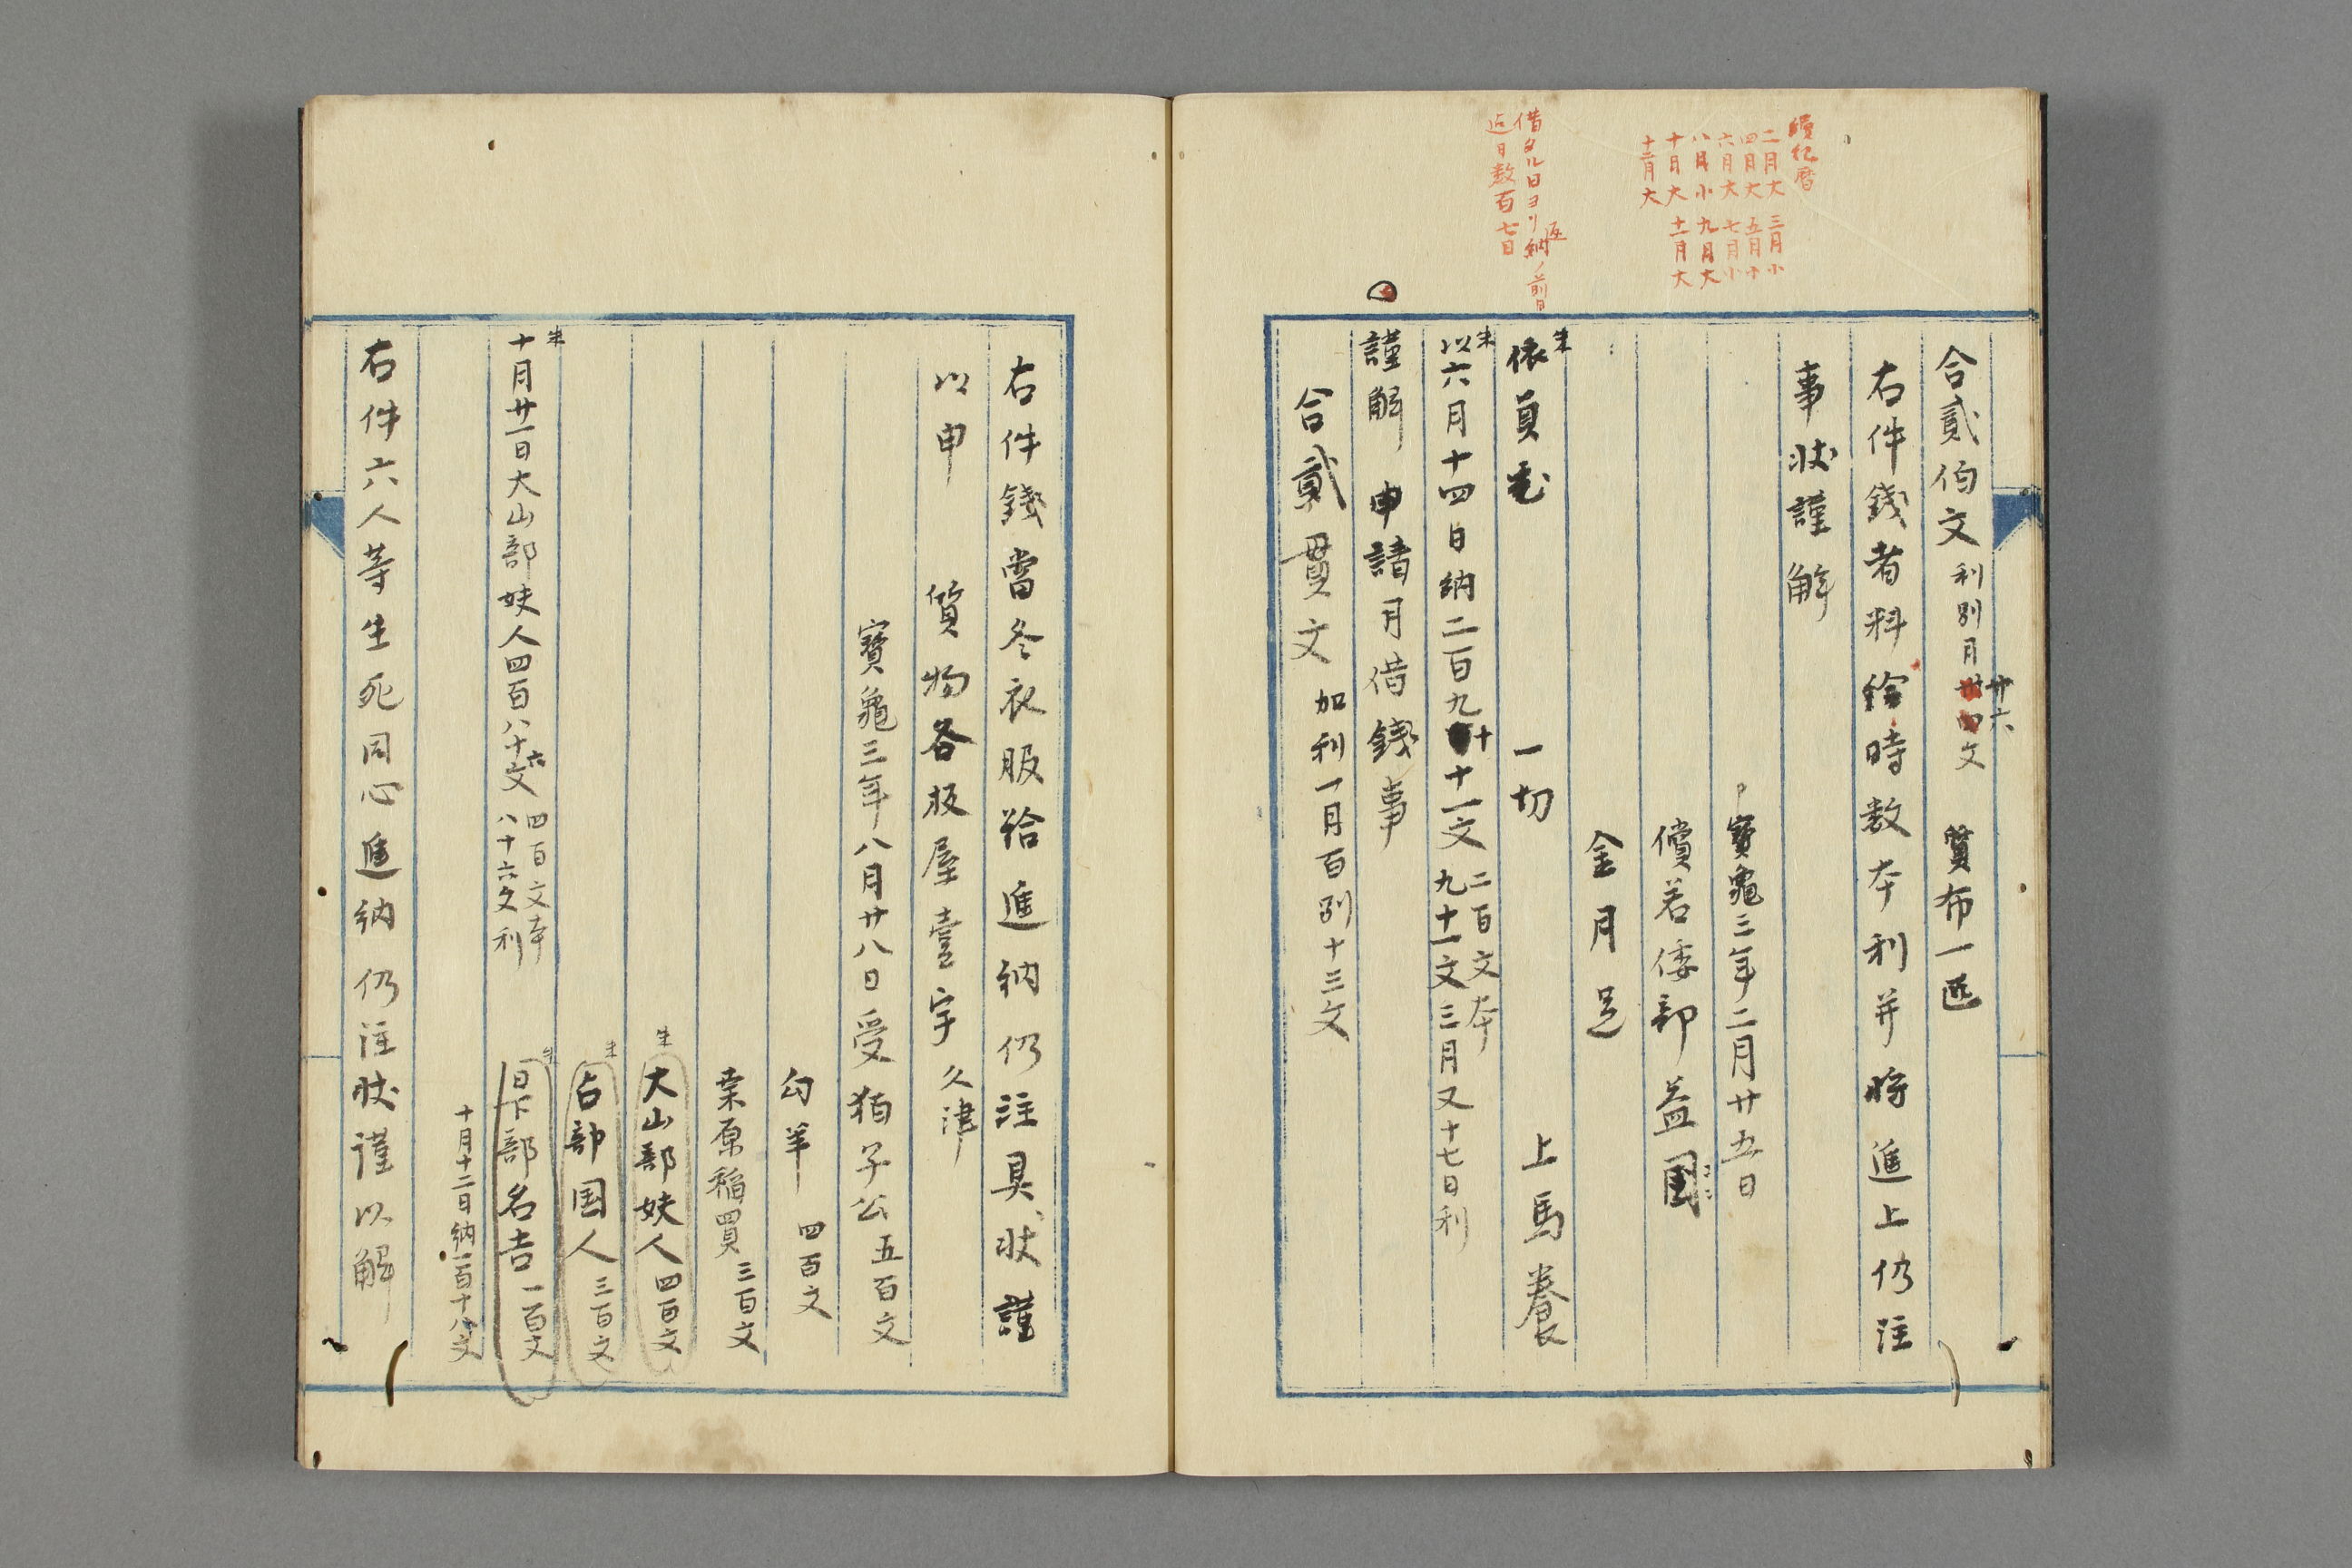 續紀暦
二月大 三月小
四月大 五月小
六月大 七月小
八月小 九月大
十月大 十一月大
十二月大
借タル日ヨリ納返ノ前日
迄日数百七日
合貳伯文 利別月廿六文 質布一匹
右件錢者料給時数本利并将進上仍注
事状謹解
寶龜三年二月廿五日
償若倭部益国
金月足
朱 依員充 一切 上馬養
朱 以六月十四日納二百九十一文 二百文本 九十一文三月又十七日利
謹解 申請月借錢事
合貳貫文 加利一月百別十三文
右件錢當冬衣服給進納仍注具状謹
以申 質物各板屋壹宇 久津
寶龜三年八月廿八日受猪子公 五百文
勾羊 四百文
桒原稲買 三百文
朱 大山部妋人 四百文
朱 占部国人 三百文
朱 十月廿一日大山部妋人四百八十六文 四百文本 八十六文利 朱 日下部名吉 一百文
十月十二日納一百十八文
右件六人等生死同心進納仍注状謹以解